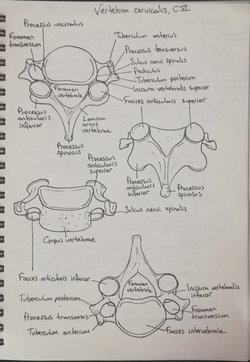 Vertebra cervicalis, C VI
Processus uncinatus
Foramen
transversum
Tuberculum anterius
Processus transversus
Sulcus nervi spinalis
Pediculus
Tuberculum posterius
Incisura vertebralis superior
Foramen
vertebrale
Facies articularis superior
Processus
articularis
inferior
Lamina
arcus
vertebrae
Processus
spinosus
Processus
articularis
superior
Processus
articularis
inferior
Processus
spinosus
Sulcus nervi spinalis
Corpus vertebrae
Facies articularis inferior
Tuberculum posterius
Foramen
vertebrale
Incisura vertebralis
inferior
Processus transversus
Foramen
transversum
Tuberculum anterius
Facies intervertebralis